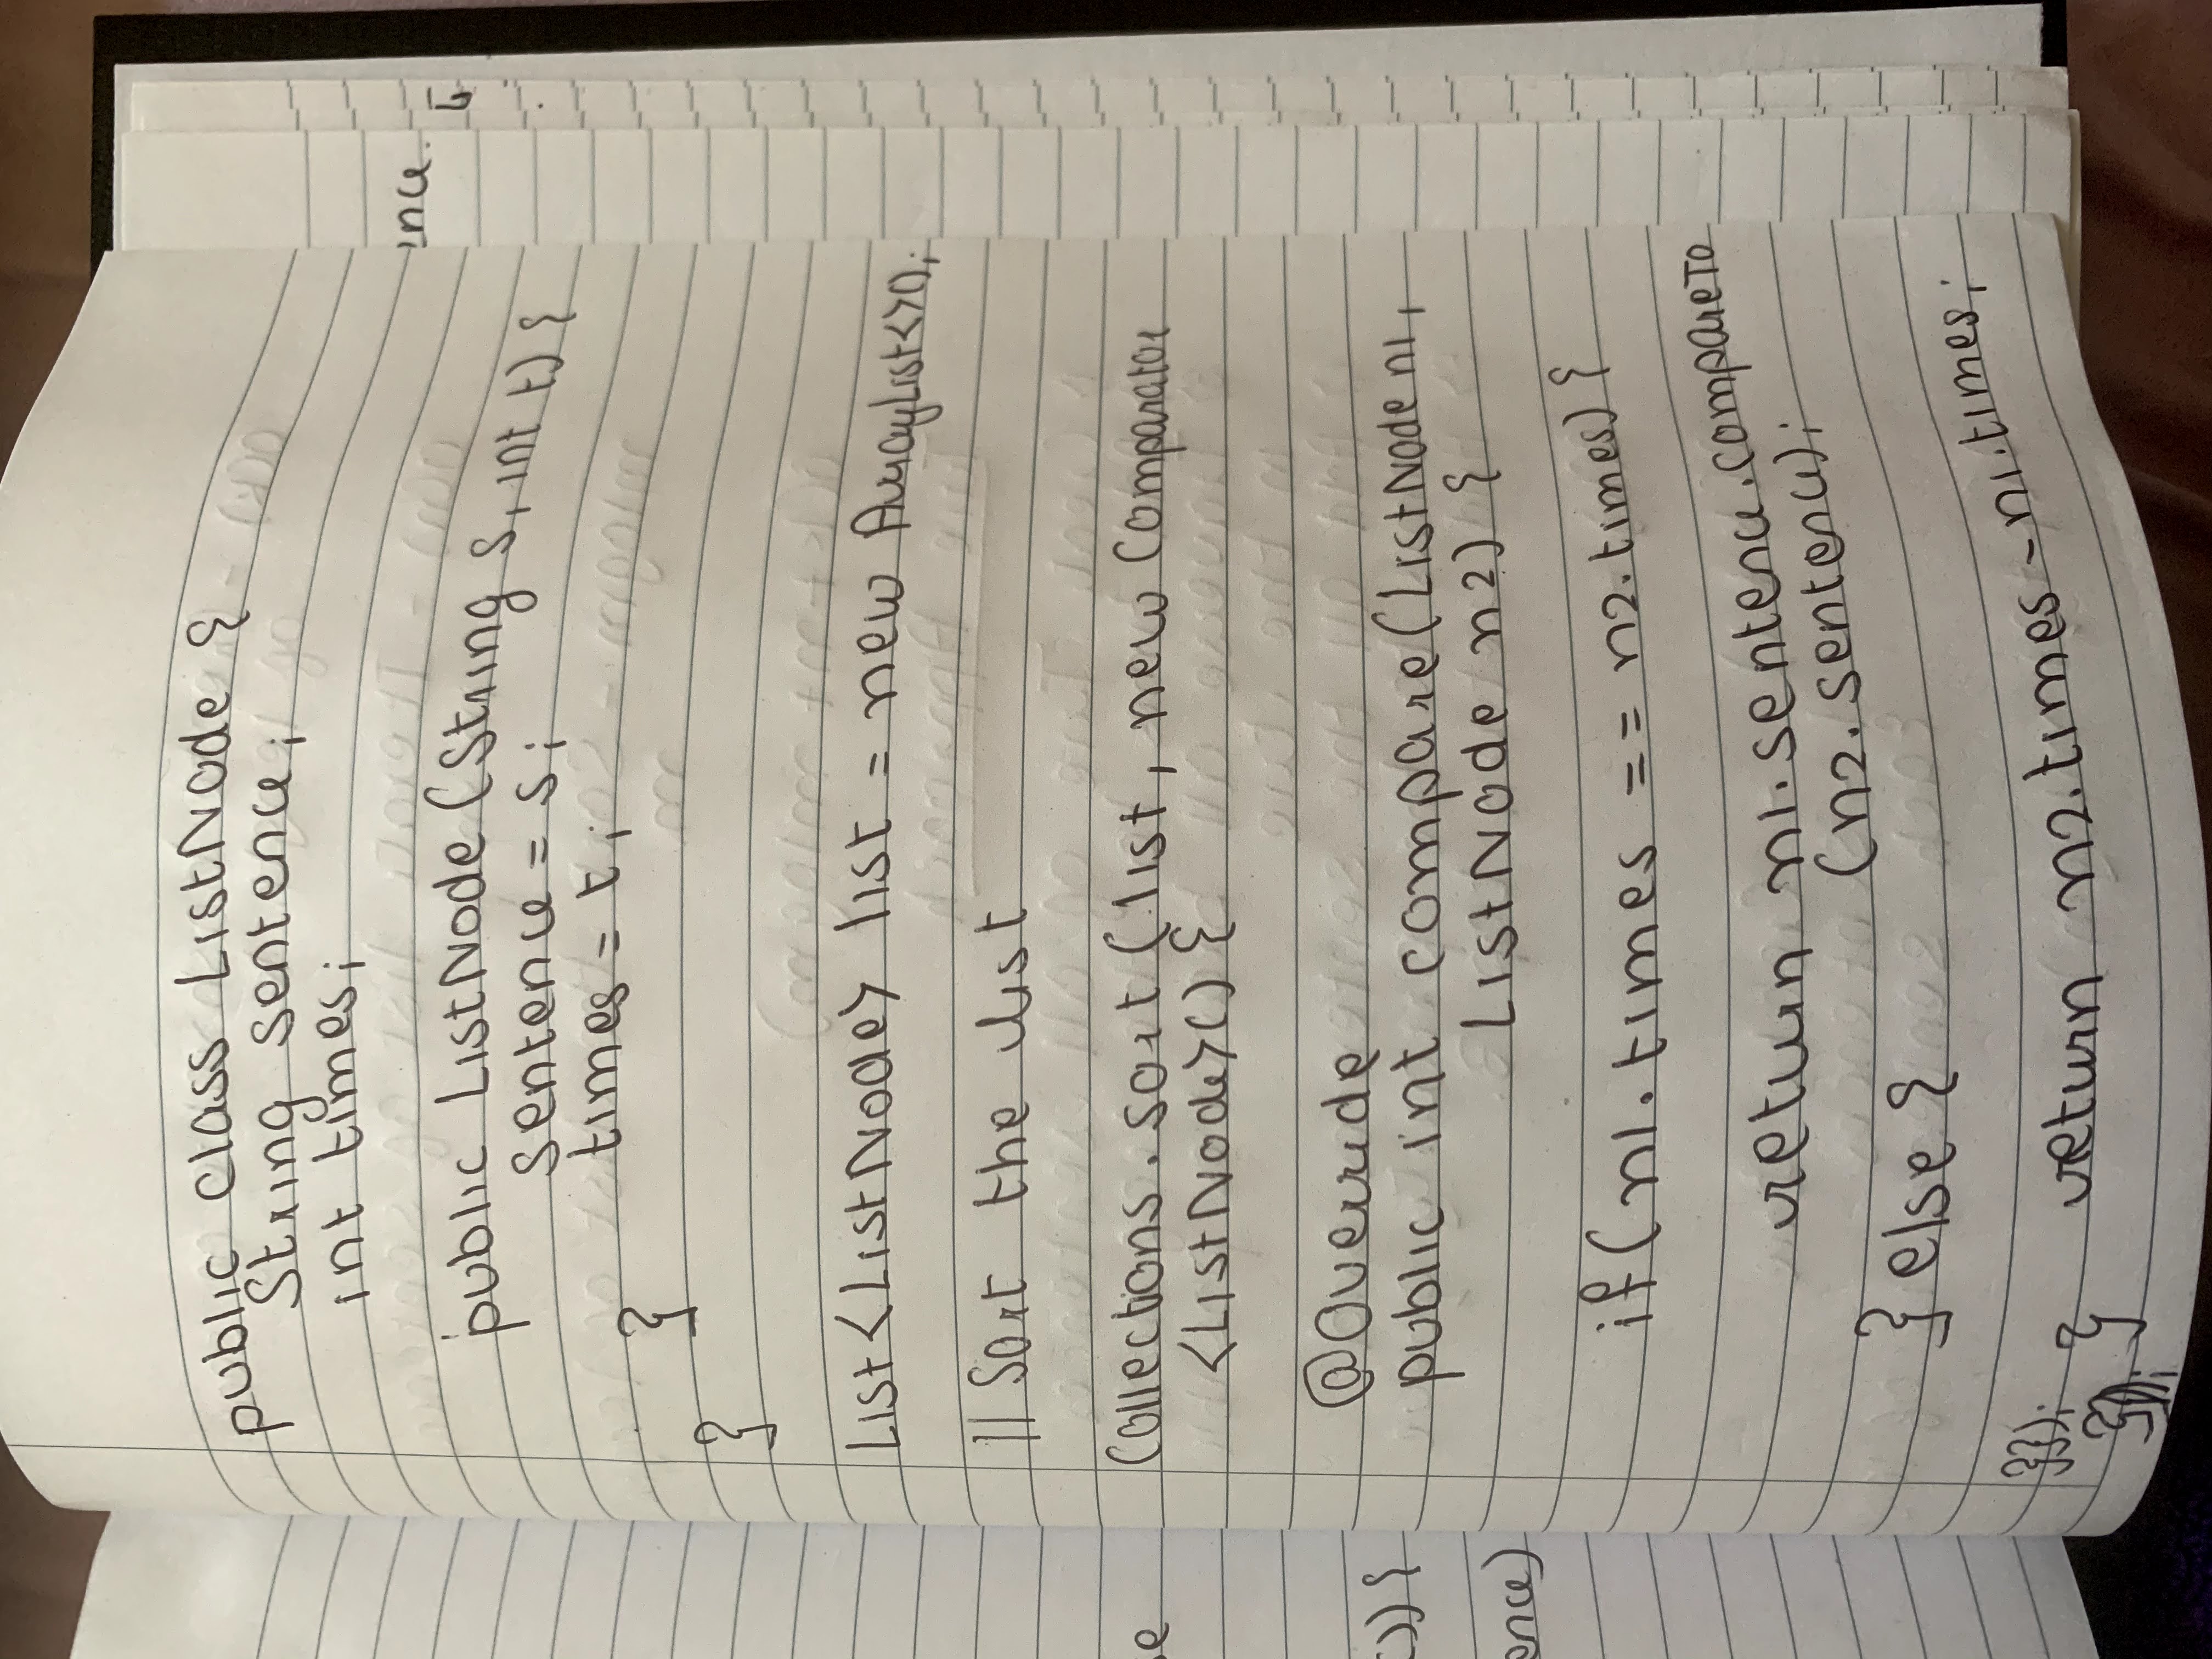 public class ListNode {
String sentence;
int times;
public ListNode (String s, int t) {
sentence = s;
times = t;
}
}
List<ListNode> list = new ArrayList<>();
// Sort the list
Collections.sort (list, new Comparator
<ListNode>() {
@Override
public int compare(ListNode n1,
ListNode n2) {
if(n1.times == n2.times) {
return n1.sentence.compareTo
(n2.sentence);
} else {
return n2.times - n1.times;
}
}});